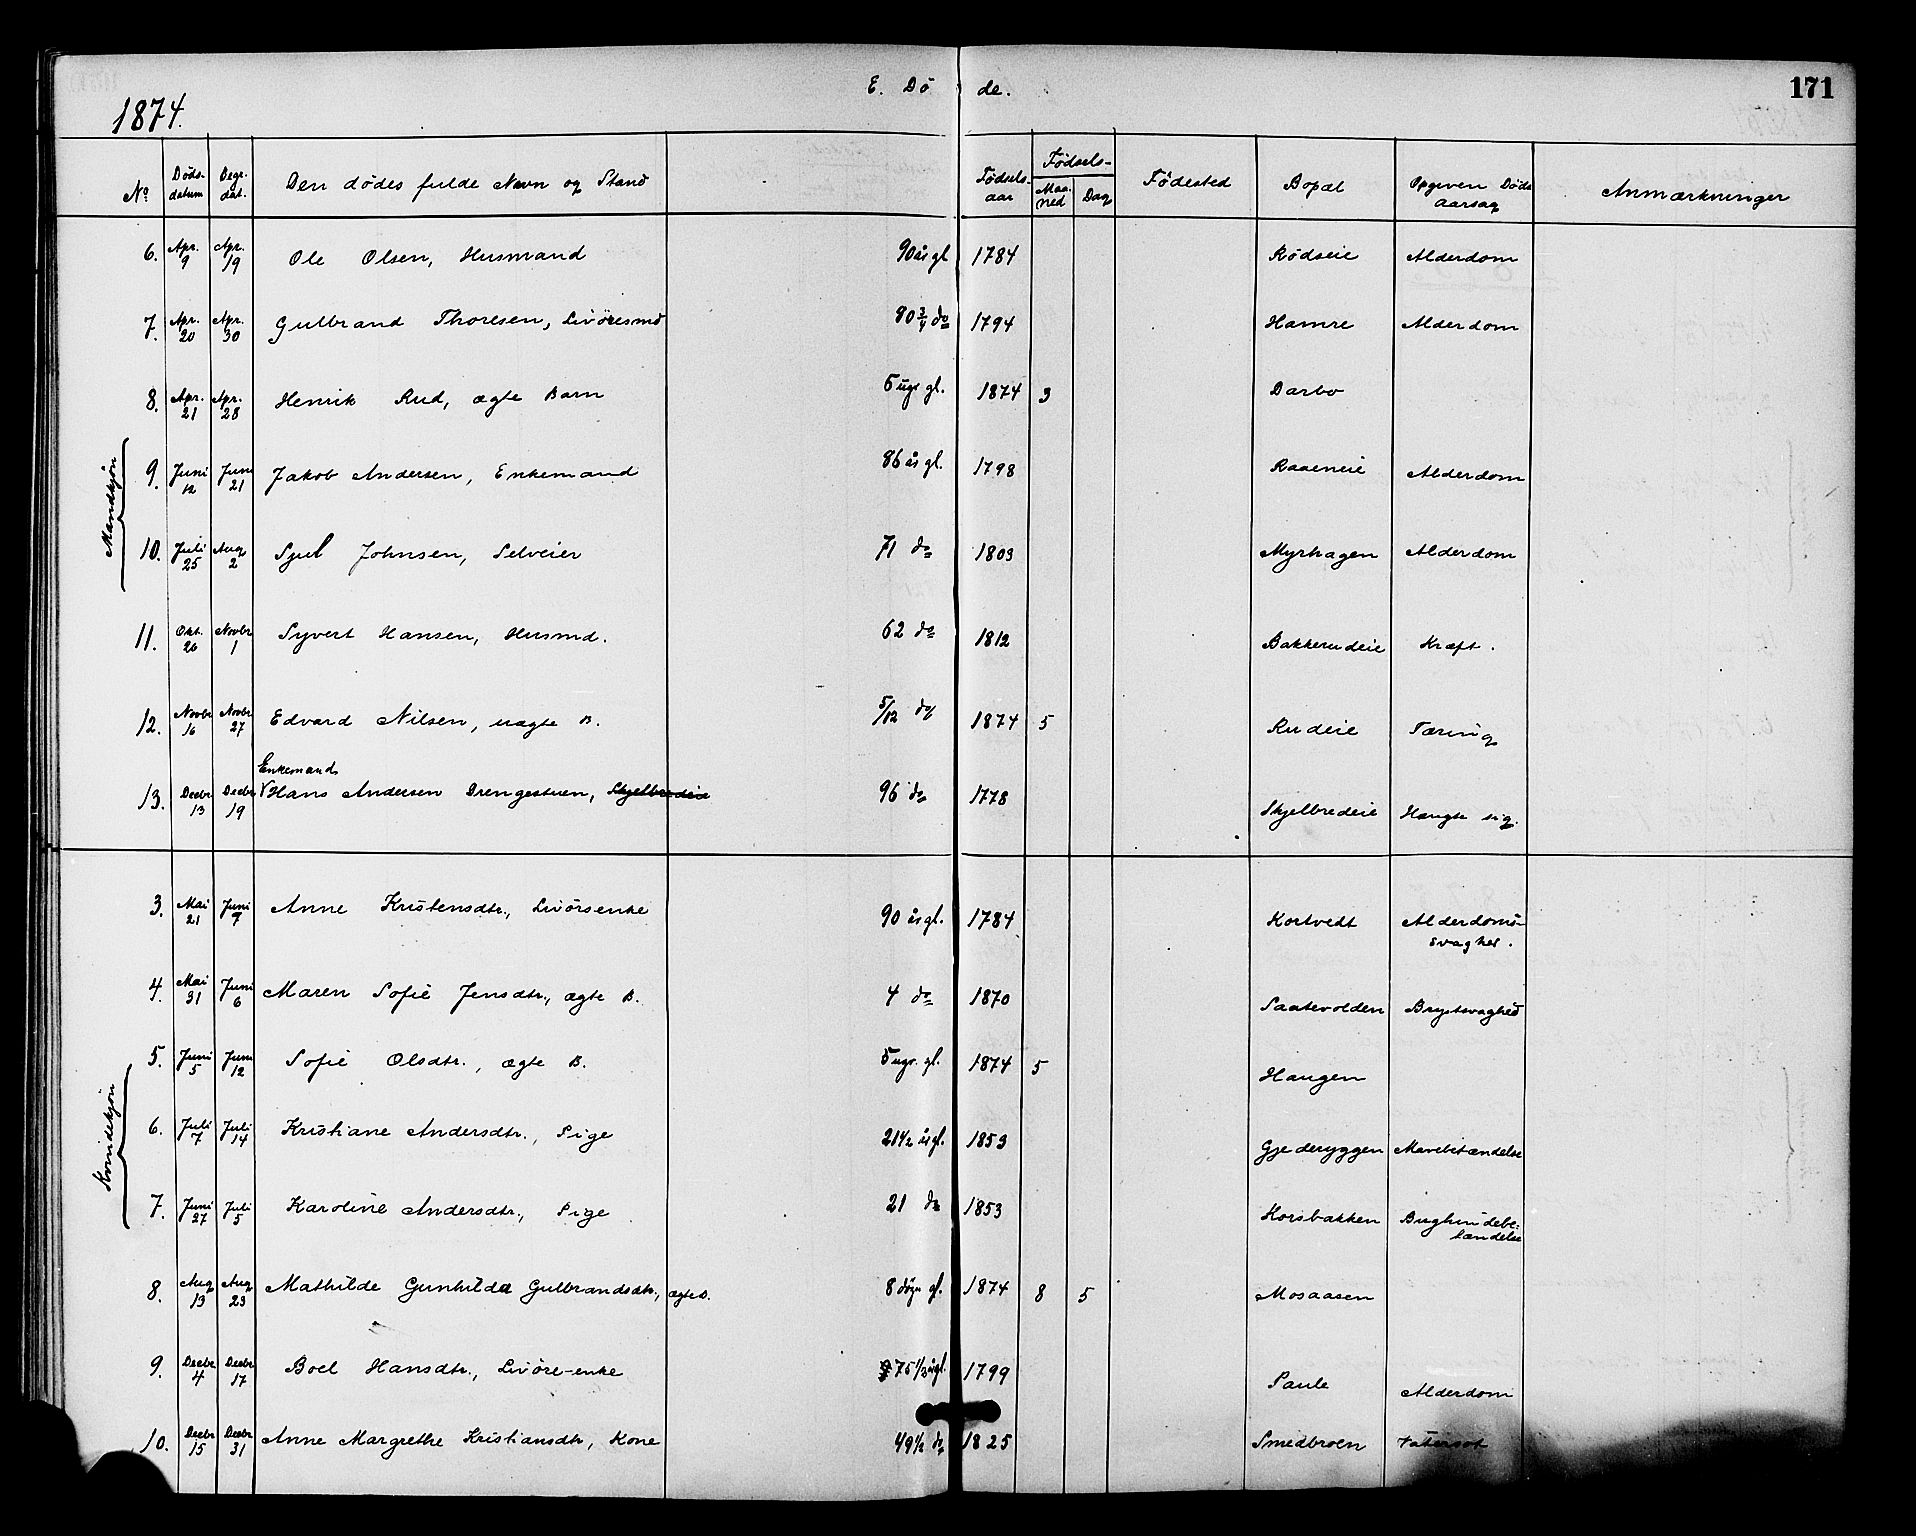 171
E. Døde.
1874.
No Døds-datum Begr. dat. Den dødes fulde Navn og Stand Fødsels-aar Fødsels- Maaned Dag Fødested Bopæl Opgiven Døds aarsag Anmærkninger
Mandkjøn
6. Apr. 9 Apr. 19 Ole Olsen, Husmand 90 år gl 1784 Rødseie Alderdom
7. Apr. 20 Apr. 30 Gulbrand Thoresen, Livøresmd 80 3/4 do 1794 Hamre Alderdom
8. Apr. 21 Apr. 28 Henrik Rud, ægte Barn 5 uge gl. 1874 3 Darbo
9. Juni 12 Juni 21 Jakob Andersen, Enkemand 86 år gl. 1798 Raaeneie Alderdom
10. Juli 25 Aug 2 Sjul Johnsen, Selveier 71 do 1803 Myrhagen Alderdom
11. Okt. 26 Novbr 1 Syvert Hansen, Husmd. 62 do 1812 Bakkerudeie Kræft.
12. Novbr 16 Novbr 27 Edvard Nilsen, uægte B. 5/12 do 1874 5 Rudeie Tæring
Enkemand
13. Decbr 13 Decbr 19 √Hans Andersen Drengestuen, Skjelbredeie 96 do 1778 Skjelbredeie Hængte sig.
Kvindekjøn
3. Mai 21 Juni 7 Anne Kristensdtr., Livørsenke 90 år gl. 1784 Kortvedt Alderdoms-svaghed.
4. Mai 31 Juni 6 Maren Sofie Jensdtr., ægte B. 4 do 1870 Saatevolden Brystsvaghed
5. Juni 5 Juni 12 Sofie Olsdtr., ægte B. 5 ugr. gl. 1874 5 Haugen
6. Juli 7 Juli 14 Kristiane Andersdtr., Pige 21 1/2 år gl. 1853 Gjederyggen Mavebetændelse
7. Juni 27 Juli 5 Karoline Andersdtr., Pige 21 do 1853 Korsbakken Bughindebe-tændelse
8. Aug 13 Aug 23 Mathilde Gunhilda Gulbrandsdtr., ægte B. 8 døgn gl. 1874 8 5 Mosaasen
9. Decbr 4 Decbr 17 Boel Hansdtr., Livøre-enke 75 1/2 år gl. 1799 Paule Alderdom
10. Decbr 15 Decbr 31 Anne Margrethe Kristiansdtr, Kone 49 1/2 do 1825 Smedbroen